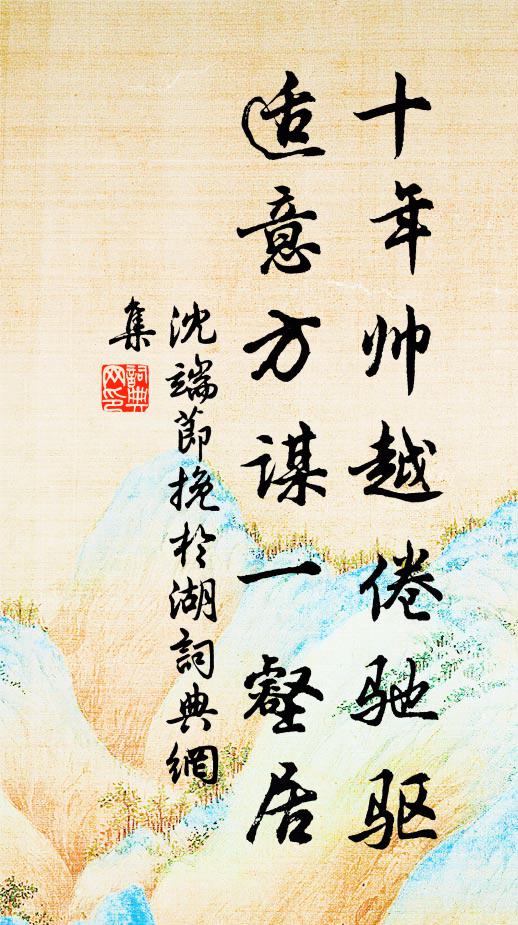 十年帅越倦驰驱
适意方谋一壑居
沈端節挽於湖詞典網
集
詞典网印